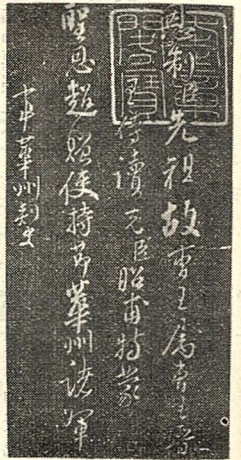 制臣先祖故曹王属
侍讀先臣昭甫特蒙
聖恩超贈使持節華州諸軍
事華州刺史